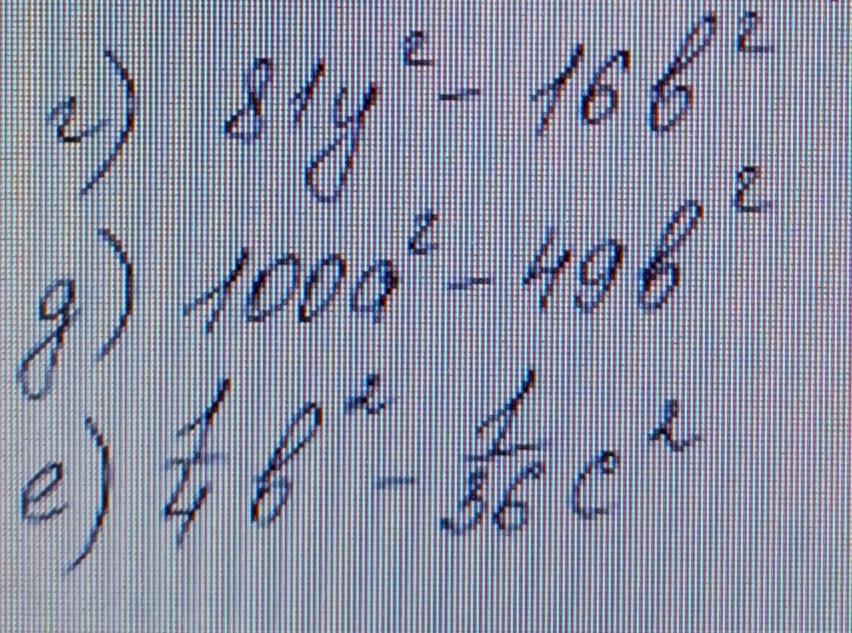 г) 81y² - 16b²
д) 100a² - 49b²
е) 1/4 b² - 1/36 c²